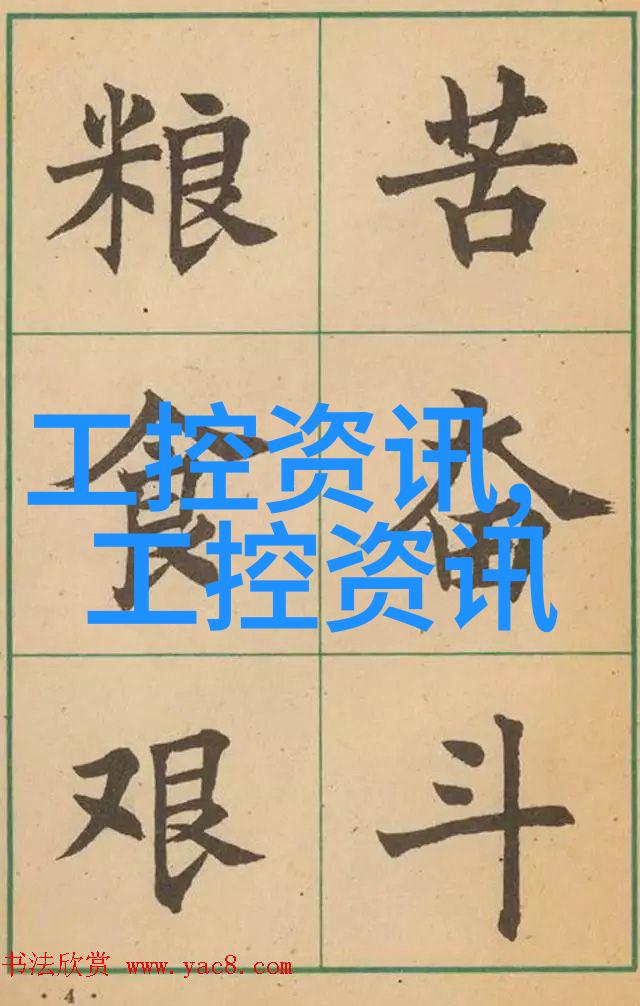 粮食艰
苦奋斗
工控资讯,
工控资讯
书法欣赏 www.yac8.com
· 4 ·